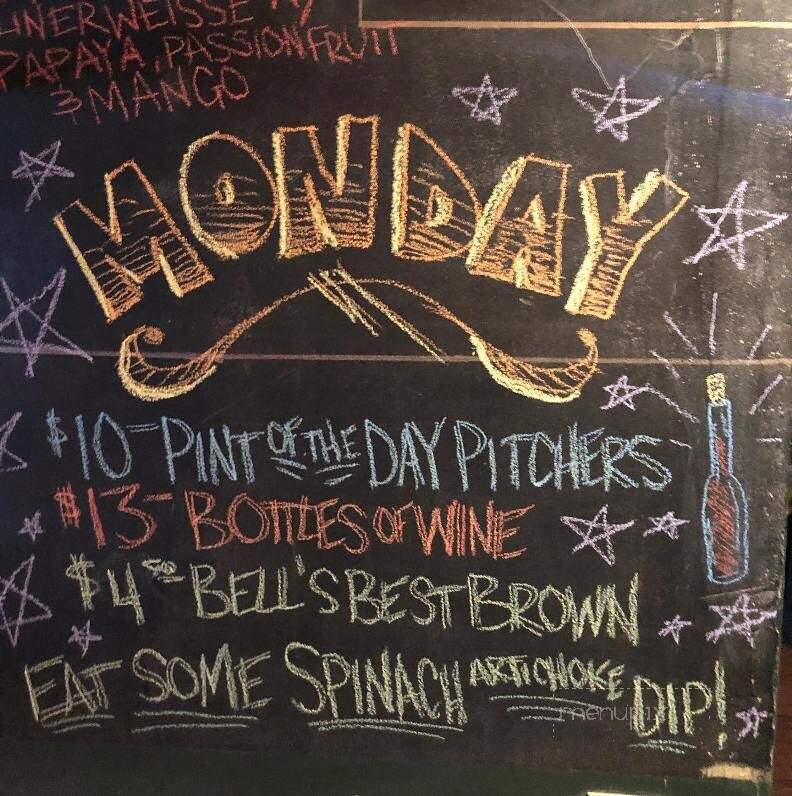 PAPAYA, PASSIONFRUIT
& MANGO
MONDAY
$10- PINT OF THE DAY PITCHERS
$13- BOTTLES OF WINE
$4 50 BELL'S BEST BROWN
EAT SOME SPINACH ARTICHOKE DIP!